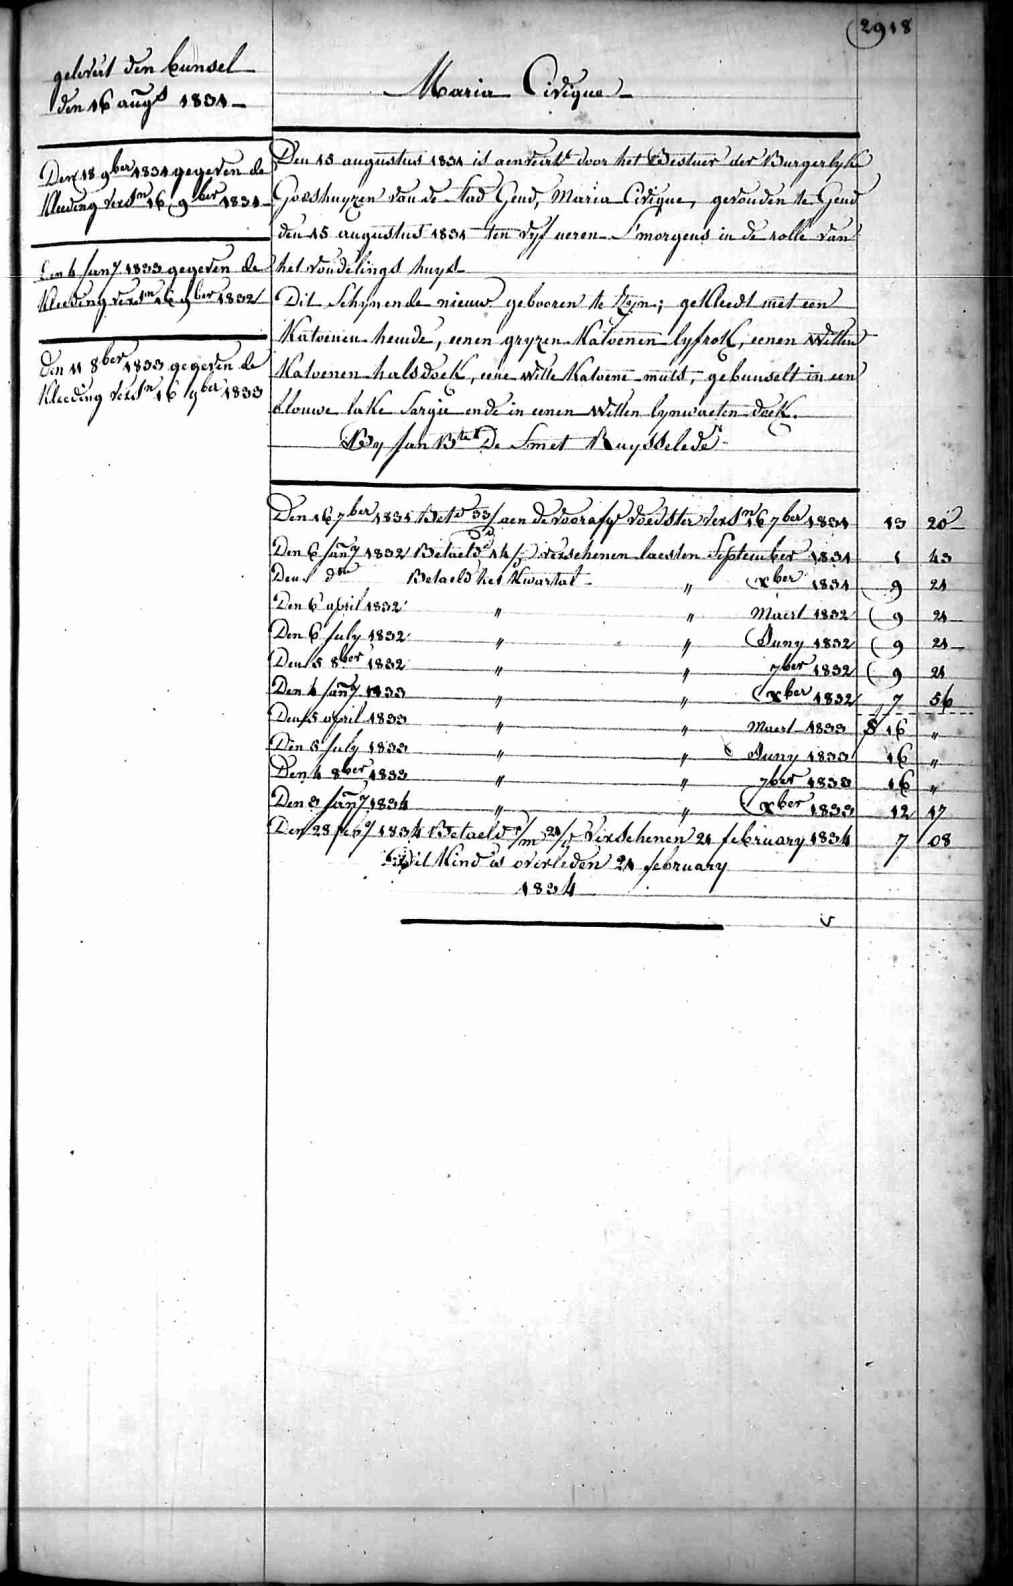 2918
gelevert den bunsel
den 16 augs 1831
Maria Civique
Den 18 9ber 1831 gegeven de
Kleeding versn 16 9ber 1831
Den 6 Jany 1833 gegeven de
Kleeding versn 16 9ber 1832
Den 11 8ber 1833 gegeven de
Kleeding versn 16 9ber 1833
Den 15 augustus 1831 is aenveirt door het Bestuer der Burgerlyke
Godshuyzen van de stad Gend, Maria Civique, gevonden te Gend
den 15 augustus 1831 ten vyf ueren S'morgens in de rolle van
het vondelings huys
Dit Schynende nieuw gebooren te Zyn; gekleedt met een
Katoenen hemde, eenen gryzen Katoenen lyfrok, eenen witten
Katoenen halsdoek, eene witte Katoene muts, gebunselt in een
blouwe lake Sargie ende in eenen witten lynwaeten doek.
By Jan Bte De Smet Ruysselede
Den 16 7ber 1831 Betd 33/ aen de voorafg voedster versn 16 7ber 1831 13 20
Den 6 Jany 1832 Betaeld 14/ verschenen laesten September 1831 1 43
Den s dto Betaeld het Kwartal " xber 1831 9 21
Den 6 april 1832 " " Maert 1832 9 21
Den 6 July 1832 " " Juny 1832 9 21
Den 5 8ber 1832 " " 7ber 1832 9 21
Den 4 Jany 1833 " " xber 1832 7 56
Den 5 april 1833 " " Maert 1833 16 "
Den 5 July 1833 " " Juny 1833 16 "
Den 4 8ber 1833 " " 7ber 1833 16 "
Den 3 Jany 1834 " " xber 1833 12 17
Den 28 1834 Betaeld Verschenen 21 february 1834 7 08
Dit Kind is overleden 21 february
1834